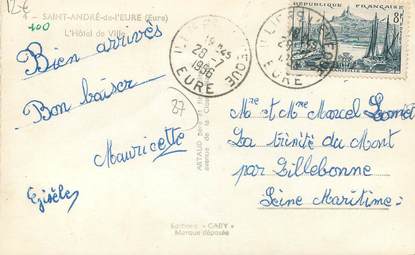 12€
100
4 - SAINT-ANDRÉ-de-l'EURE (Eure)
L'Hôtel de Ville
Bien arrivés
Bon baiser
Mauricette
Gisèle
37
18H45
28-7
1956
EURE
EURE
RÉPUBLIQUE FRANÇAISE
8F
Mre et Mme Marcel
La Trinité du Mont
par Lillebonne
Seine Maritime
Editions « GABY »
Marque déposée